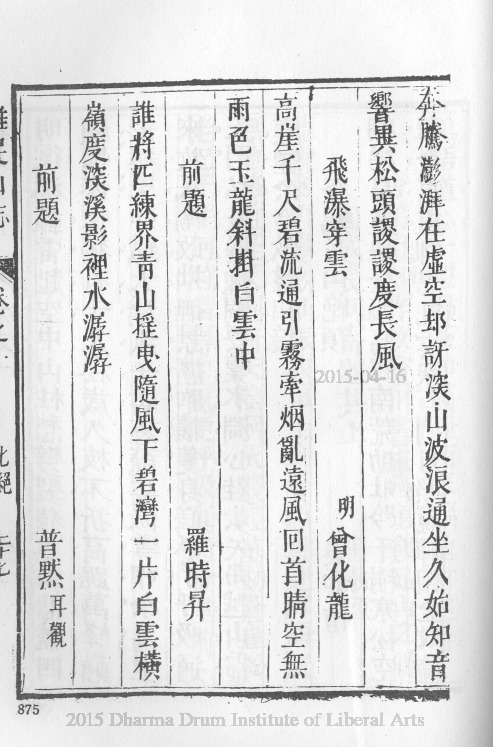 奔騰澎湃在虛空却訝深山波浪通坐久始知音
響異松頭謖謖度長風
飛瀑穿雲 明 曾化龍
高崖千尺碧流通引霧牽烟亂遠風回首晴空無
雨色玉龍斜掛白雲中
前題 羅時昇
誰將匹練界青山搖曳隨風下碧灣一片白雲橫
嶺度淡溪影裡水潺潺
前題 普黙 耳觀
875
2015-04-16
2015 Dharma Drum Institute of Liberal Arts